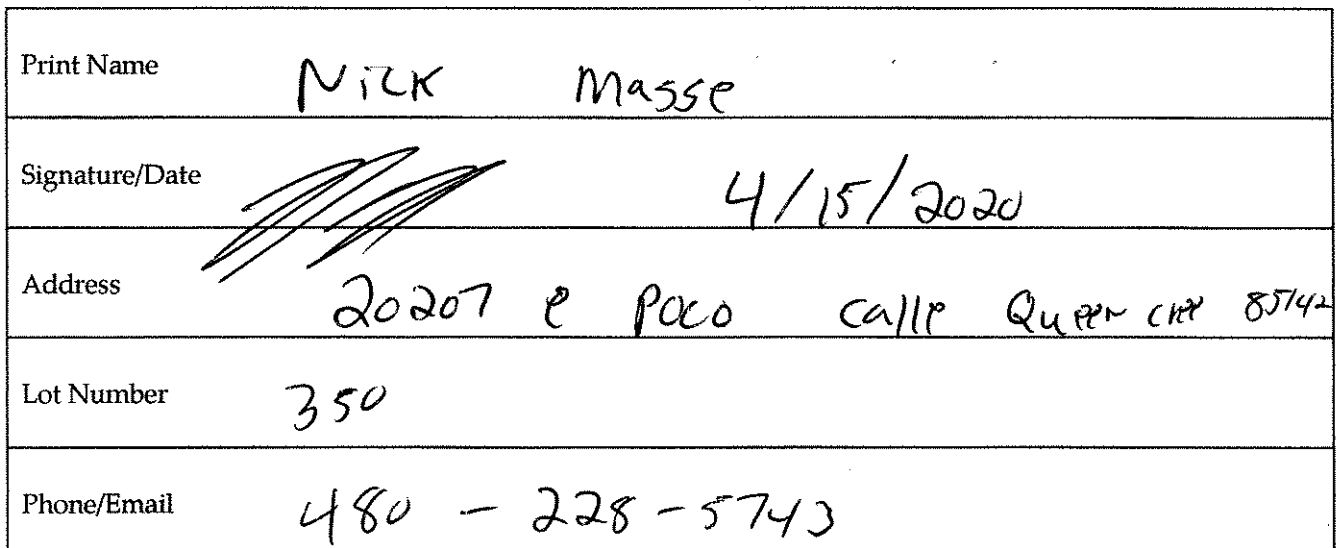 Print Name Nick Masse
Signature/Date 4/15/2020
Address 20207 e Poco calle Queen 85142
Lot Number 350
Phone/Email 480 - 228 - 5743